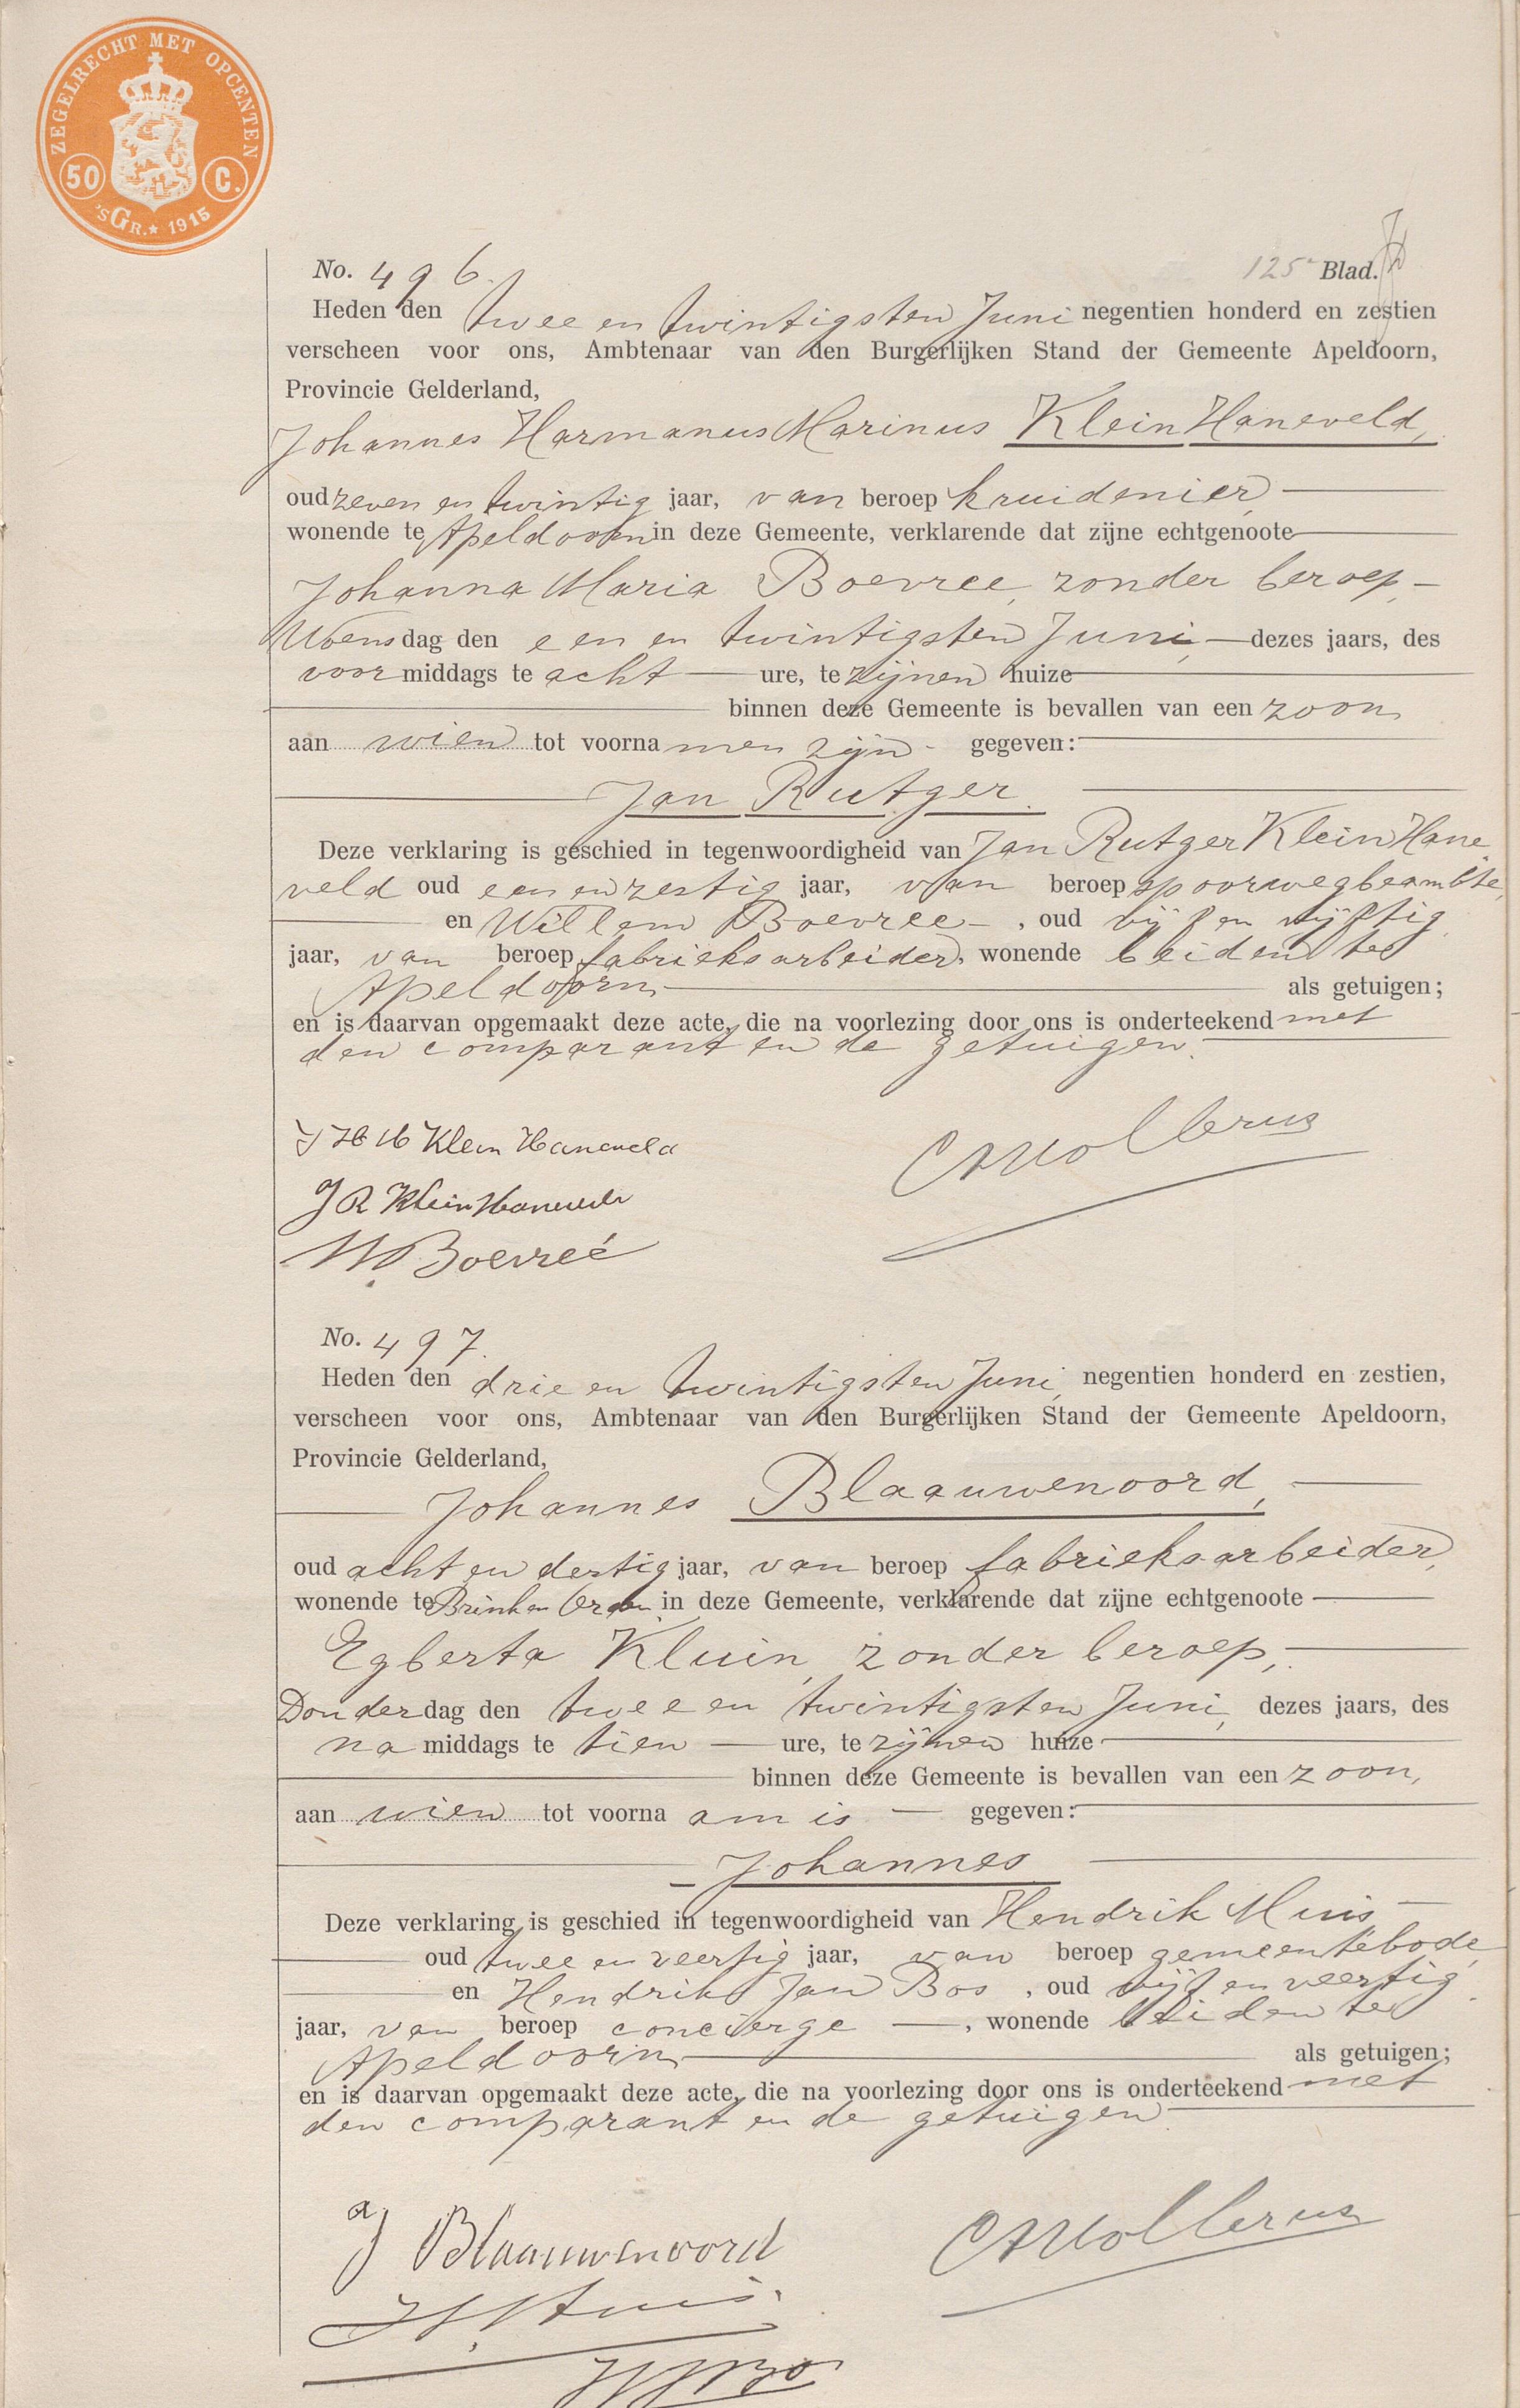 ZEGELRECHT MET OPCENTEN
50 C.
'sGR.★ 1915
No. 496. 125e Blad.
Heden den twee en twintigsten Juni negentien honderd en zestien
verscheen voor ons, Ambtenaar van den Burgerlijken Stand der Gemeente Apeldoorn,
Provincie Gelderland,
Johannes Harmanus Marinus Klein Haneveld,
oud zeven en twintig jaar, van beroep kruidenier,
wonende te Apeldoorn in deze Gemeente, verklarende dat zijne echtgenoote
Johanna Maria Boevree, zonder beroep,
Woensdag den een en twintigsten Juni, dezes jaars, des
voormiddags te acht ure, te zijnen huize
binnen deze Gemeente is bevallen van een zoon,
aan wien tot voornamen zijn gegeven:
Jan Rutger.
Deze verklaring is geschied in tegenwoordigheid van Jan Rutger Klein Hane-
veld oud een en zestig jaar, van beroep spoorwegbeambte,
en Willem Boevree, oud vijf en vijftig
jaar, van beroep fabrieksarbeider, wonende beiden te
Apeldoorn, als getuigen;
en is daarvan opgemaakt deze acte, die na voorlezing door ons is onderteekend met
den comparant en de getuigen.
J H M Klein Haneveld
J R Klein Haneveld
W. Boevreé
No. 497.
Heden den drie en twintigsten Juni, negentien honderd en zestien,
verscheen voor ons, Ambtenaar van den Burgerlijken Stand der Gemeente Apeldoorn,
Provincie Gelderland,
Johannes Blaauwenoord,
oud acht en dertig jaar, van beroep fabrieksarbeider,
wonende te Brink en Orden in deze Gemeente, verklarende dat zijne echtgenoote
Egberta Kluin, zonder beroep,
Donderdag den twee en twintigsten Juni, dezes jaars, des
namiddags te tien ure, te zijnen huize
binnen deze Gemeente is bevallen van een zoon,
aan wien tot voornaam is gegeven:
Johannes
Deze verklaring is geschied in tegenwoordigheid van Hendrik Muis
oud twee en veertig jaar, van beroep gemeentebode,
en Hendrik Jan Bos, oud vijf en veertig
jaar, van beroep conciërge, wonende beiden te
Apeldoorn, als getuigen;
en is daarvan opgemaakt deze acte, die na voorlezing door ons is onderteekend met
den comparant en de getuigen.
J Blaauwenoord
H. Muis.
H J Bos